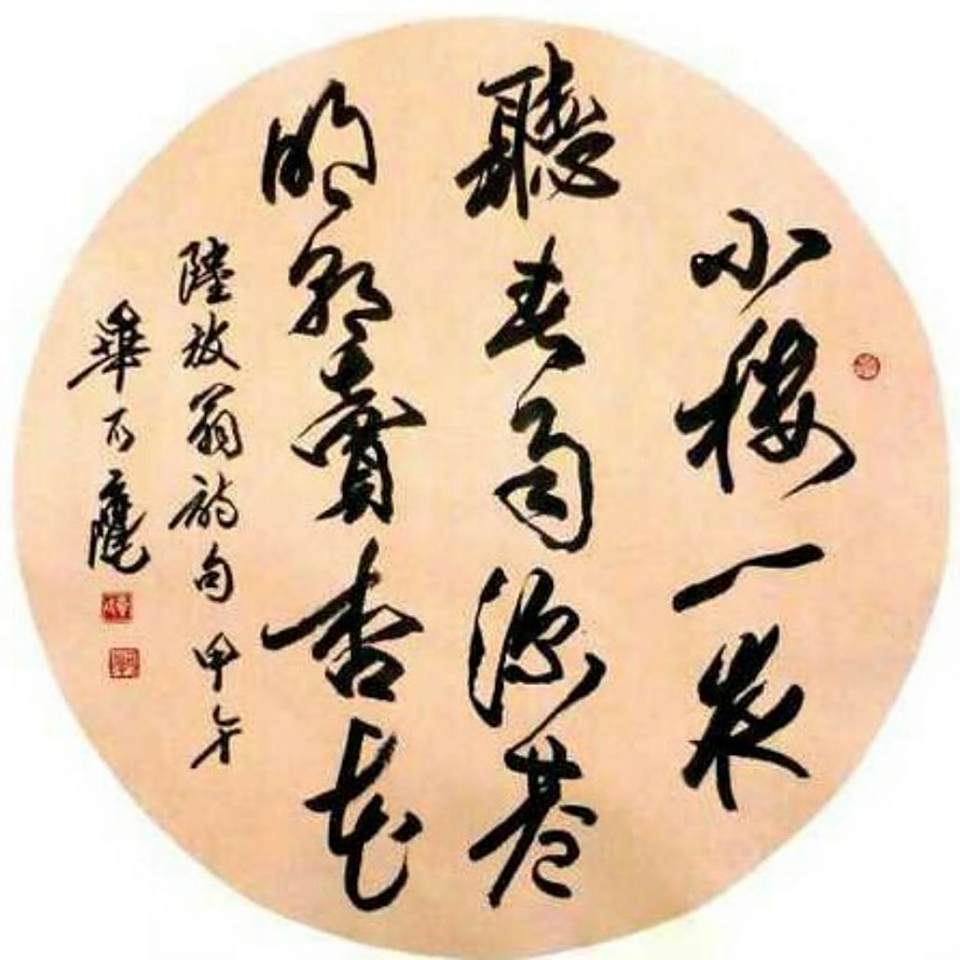 小樓一夜
聽春雨深巷
明朝賣杏花
陸放翁詩句 甲午
華